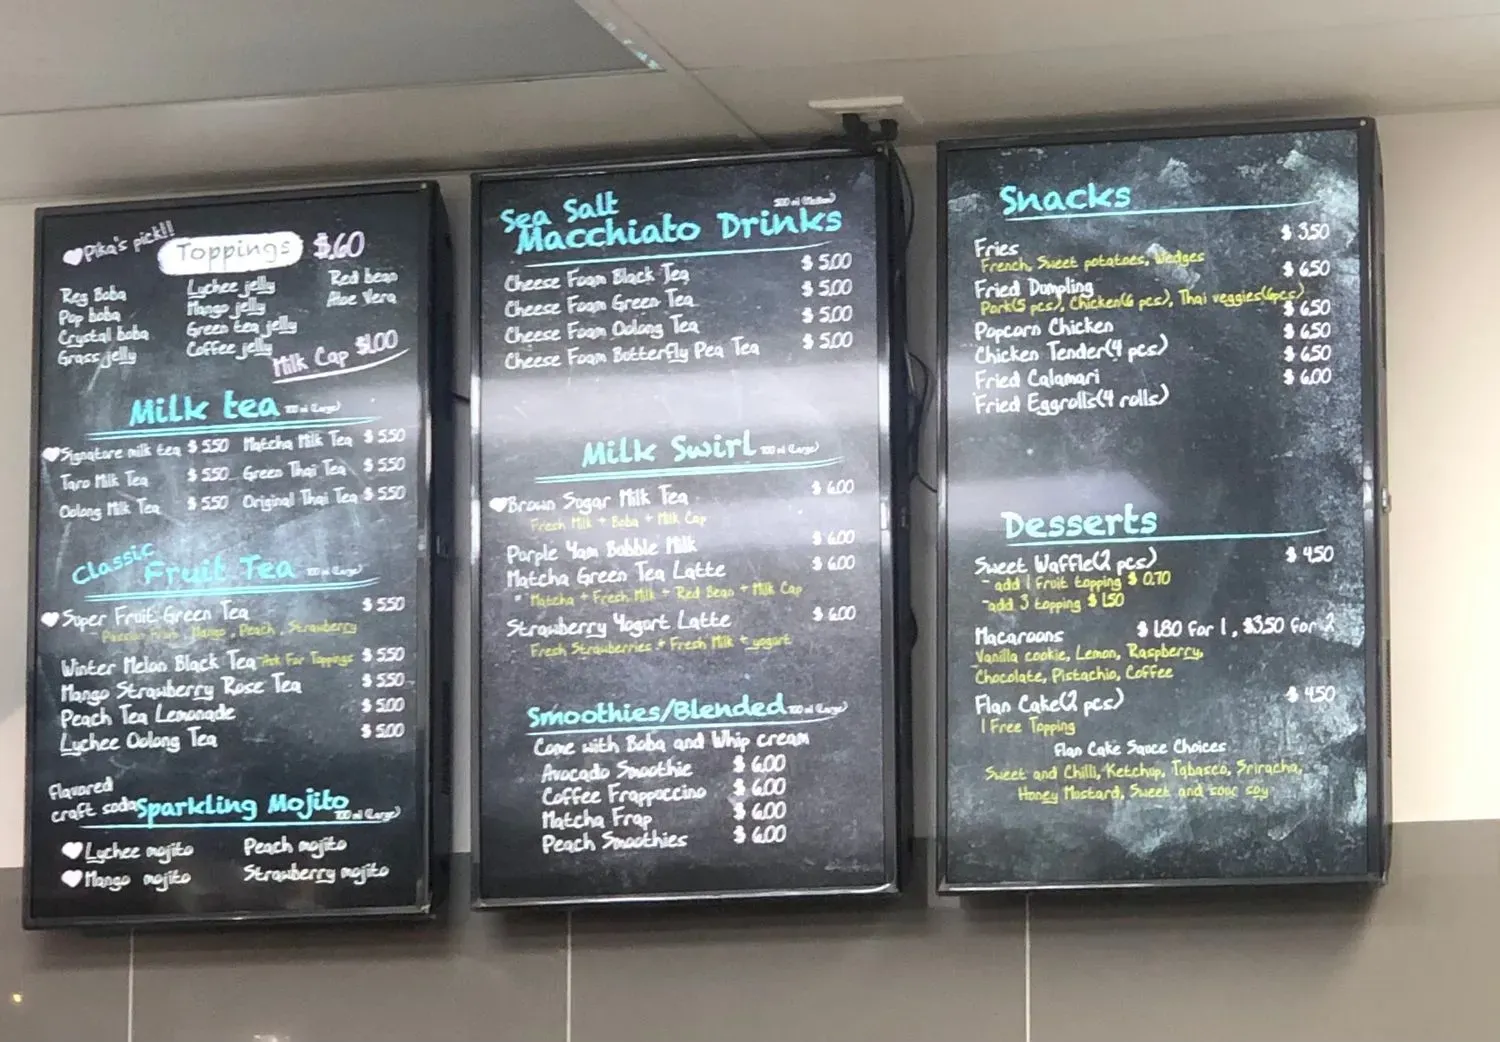 Pika's pick!!
Toppings $.60
Reg Boba
Pop boba
Crystal boba
Grass jelly
Lychee jelly
Mango jelly
Green tea jelly
Coffee jelly
Red bean
Aloe Vera
Milk Cap $1.00
Milk tea 700 ml (Large)
Signature milk tea $ 5.50 Matcha Milk Tea $ 5.50
Taro Milk Tea $ 5.50 Green Thai Tea $ 5.50
Oolong Milk Tea $ 5.50 Original Thai Tea $ 5.50
Classic
Fruit Tea 700 ml (Large)
Super Fruit Green Tea $ 5.50
Passion Fruit, Mango, Peach, Strawberry
Winter Melon Black Tea -Ask For Toppings $ 5.50
Mango Strawberry Rose Tea $ 5.50
Peach Tea Lemonade $ 5.00
Lychee Oolong Tea $ 5.00
flavored
craft soda Sparkling Mojito
700 ml (Large)
Lychee mojito Peach mojito
Mango mojito Strawberry mojito
Sea Salt 500 ml (Medium)
Macchiato Drinks
Cheese Foam Black Tea $ 5.00
Cheese Foam Green Tea $ 5.00
Cheese Foam Oolong Tea $ 5.00
Cheese Foam Butterfly Pea Tea $ 5.00
Milk Swirl 700 ml (Large)
Brown Sugar Milk Tea $ 6.00
Fresh Milk + Boba + Milk Cap
Purple Yam Bubble Milk $ 6.00
Matcha Green Tea Latte $ 6.00
* Matcha + Fresh Milk + Red Bean + Milk Cap
Strawberry Yogurt Latte $ 6.00
Fresh Strawberries + Fresh Milk + yogurt
Smoothies/Blended 700 ml (Large)
Come with Boba and Whip cream
Avocado Smoothie $ 6.00
Coffee Frappuccino $ 6.00
Matcha Frap $ 6.00
Peach Smoothies $ 6.00
Snacks
Fries $ 3.50
French, Sweet potatoes, Wedges
Fried Dumpling $ 6.50
Pork(5 pcs), Chicken(6 pcs), Thai veggies(6pcs)
Popcorn Chicken $ 6.50
Chicken Tender(4 pcs) $ 6.50
Fried Calamari $ 6.50
Fried Eggrolls(4 rolls) $ 6.00
Desserts
Sweet Waffle(2 pcs) $ 4.50
- add 1 Fruit topping $ 0.70
-add 3 topping $ 1.50
Macaroons $ 1.80 for 1, $3.50 for 2
Vanilla cookie, Lemon, Raspberry,
Chocolate, Pistachio, Coffee
Flan Cake(2 pcs) $ 4.50
1 Free Topping
Flan Cake Sauce Choices
Sweet and Chilli, Ketchup, Tabasco, Sriracha,
Honey Mustard, Sweet and sour soy